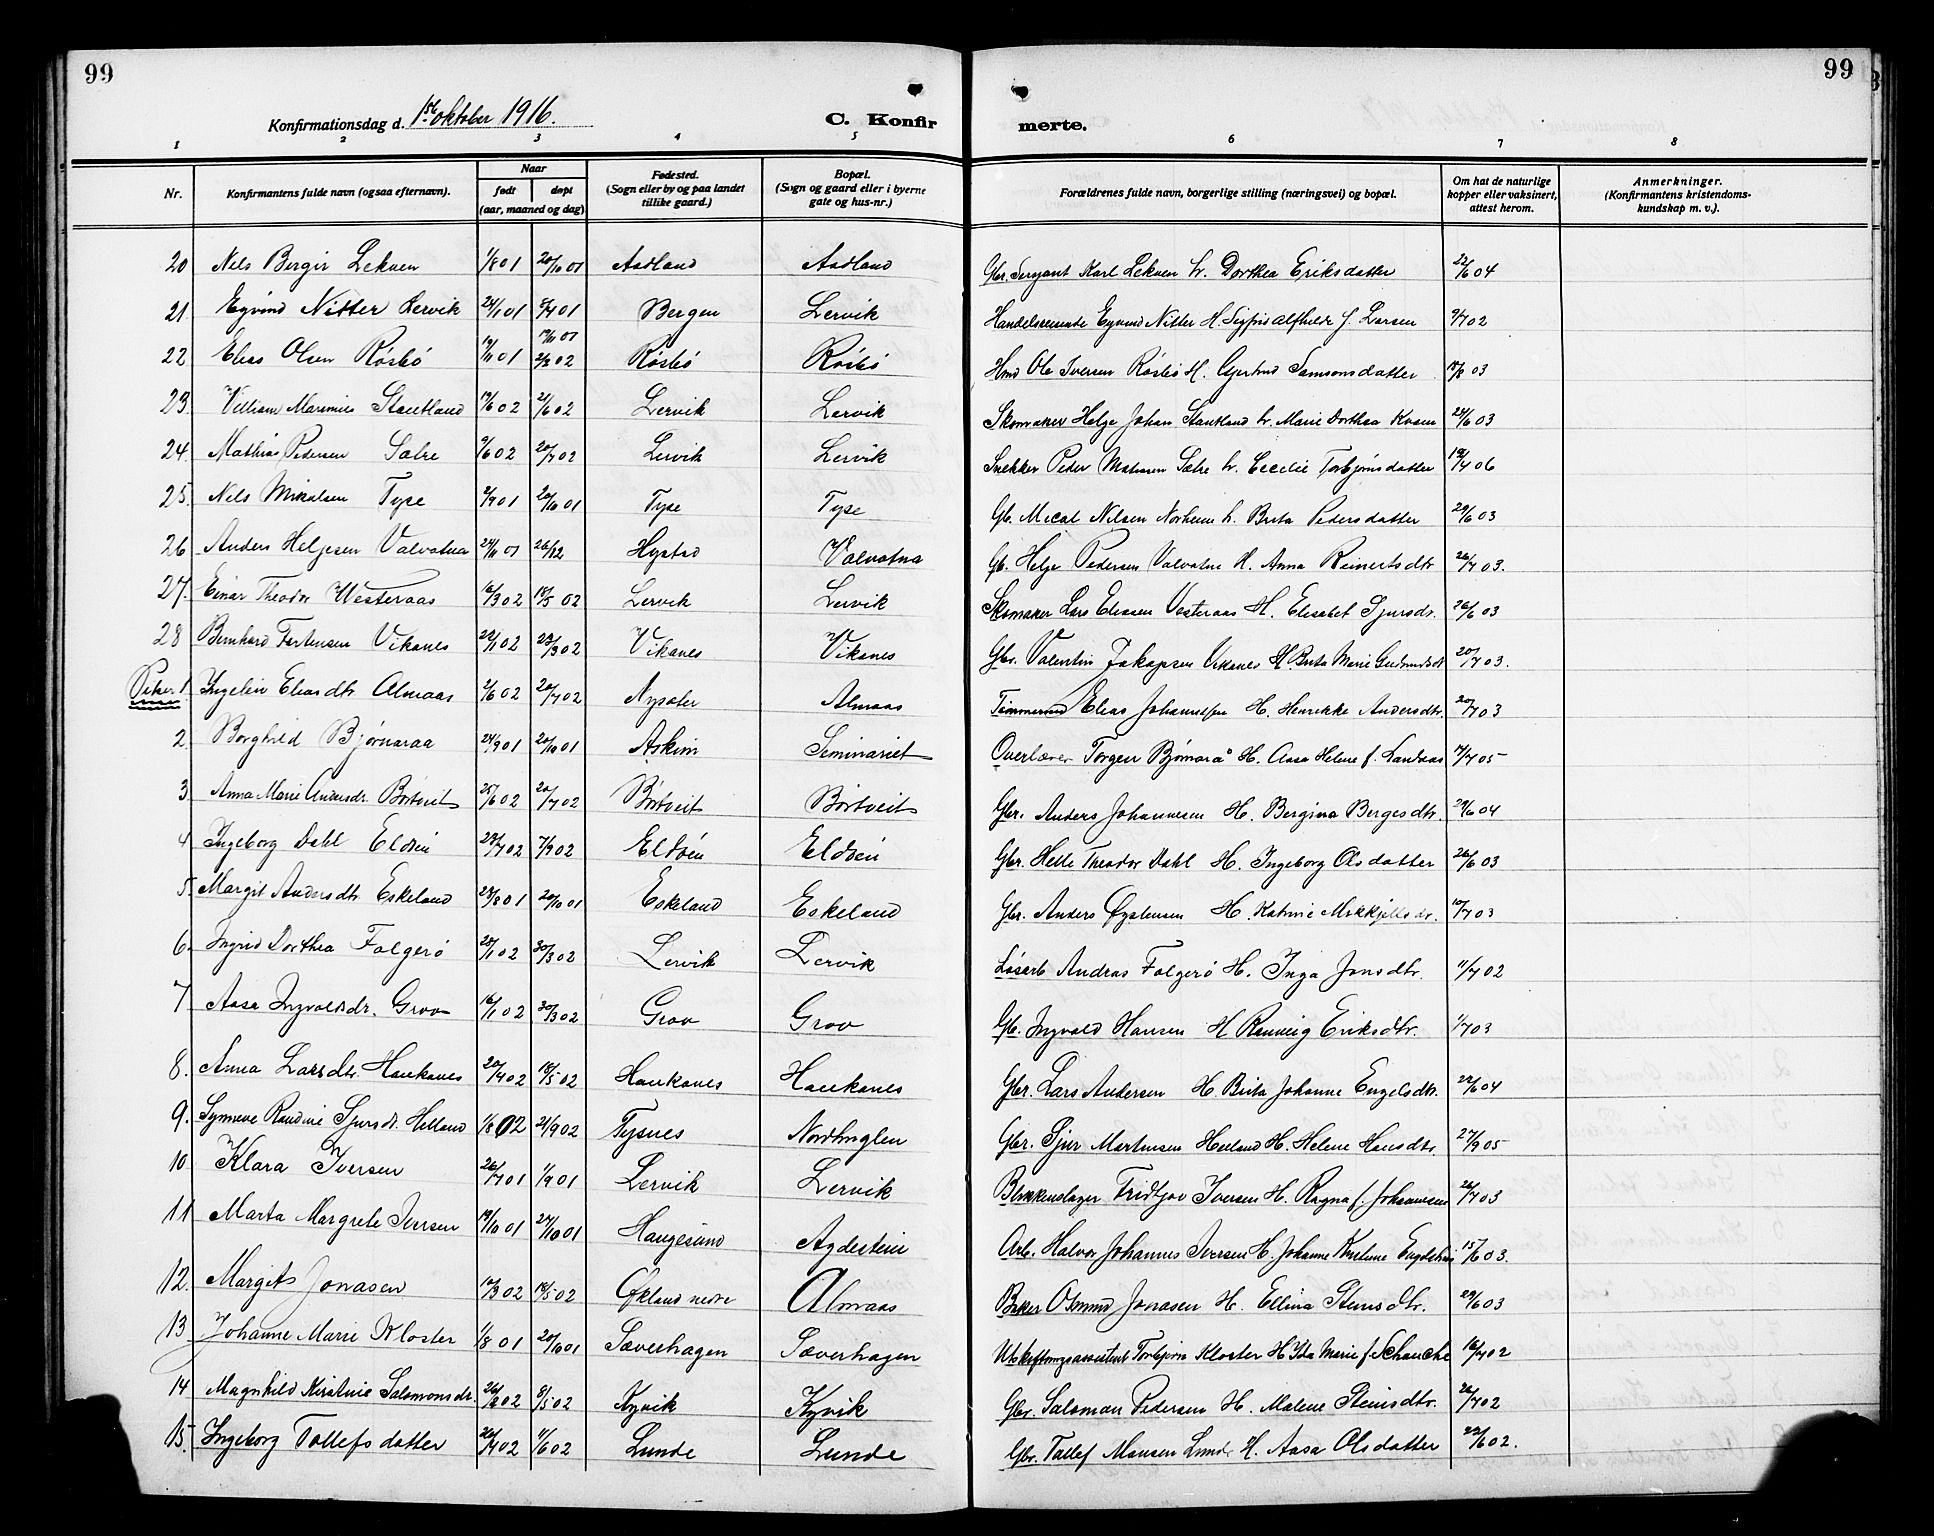 99
99
Konfirmationsdag d. 1ste oktober 1916.
C. Konfir
merte.
1 2 3 4 5 6 7 8
Nr. Konfirmantens fulde navn (ogsaa efternavn). Naar født døpt (aar, maaned og dag) Fødested. (Sogn eller by og paa landet tillike gaard.) Bopæl. (Sogn og gaard eller i byerne gate og hus-nr.) Forældrenes fulde navn, borgerlige stilling (næringsvei) og bopæl. Om hat de naturlige kopper eller vaksinert, attest herom. Anmerkninger. (Konfirmantens kristendoms-kundskap m. v.).
20 Nils Berger Lekven 1/8 01 20/10 01 Aadland Aadland Gbr. Sersjant Karl Lekven h. Dorthea Eriksdatter 22/6 04
21 Eyvind Nitter Lervik 24/1 01 8/4 01 Bergen Lervik Handelsreisende Eyvind Nitter H. Sigfrid Alfhilde f. Larsen 9/7 02
22 Elias Olsen Røsbø 14/11 01 17/11 01 2/2 02 Røsbø Røsbø Hmd Ole Iversen Røsbø H. Gjertrud Samsonsdatter 18/8 03
23. Villiam Marinius Stautland 19/6 02 21/6 02 Lervik Lervik Skomaker Helge Johan Stautland h. Marie Dorthea Knsen 24/6 03
24. Mathias Pedersen Sætre 9/6 02 20/7 02 Lervik Lervik Snekker Peder Matiasen Sætre h. Cecilie Torbjørnsdatter 19/4 06
25. Nils Mikalsen Tyse 2/9 01 20/10 01 Tyse Tyse Gb. Mical Nilsen Norheim h. Brita Pedersdatter 29/6 03
26 Anders Heljesen Valvatna 24/11 01 26/12 Hystad Valvatna Gb. Helge Pedersen Valvatne H. Anna Reinertsdtr 26/7 03.
27. Einar Theodor Westeraas 16/3 02 18/5 02 Lervik Lervik Skomaker Lars Eliasen Vesteraas H. Elisabet Sjursdr. 26/6 03
28 Bernhard Fartensen Vikanes 22/1 02 23/3 02 Vikanes Vikanes Gbr. Valentin Jakopsen Vikanes H. Brita Marie Gudmundsdt 20/7 03.
Piker 1 Ingelin Eliasdtr Almaas 2/6 02 20/7 02 Nysæter Almaas Tømmermd Elias Johannesen H. Henrikke Andersdtr. 20/7 03
2 Borghild Bjørnaraa 24/9 01 20/10 01 Askim Seminariet Overlærer Torgeir Bjørnarå H. Aasa Helene f. Landaas 4/7 05
3. Anna Marie Andersdr. Børtveit 25/6 02 20/7 02 Børtveit Børtveit Gbr. Anders Johannesen H. Bergina Bergesdtr. 29/6 04
4 Ingeborg Dahl Eldøen 23/7 02 7/9 02 Eldøen Eldøen Gbr. Helle Theodor Dahl H. Ingeborg Olsdatter 26/6 03
5. Margit Andersdtr Eskeland 23/8 01 20/10 01 Eskeland Eskeland Gbr. Anders Øystensen H. Katrine Mikkjellsdr. 10/7 03
6. Ingrid Dorthea Folgerø 28/1 02 30/3 02 Lervik Lervik Løsarb Andreas Folgerø H. Inga Jonsdtr. 11/7 02
7 Aasa Ingvaldsdr. Grov 16/1 02 30/3 02 Grov Grov Gb. Ingvald Hansen H. Ranveig Eriksdtr. 1/7 03
8. Anna Larsdtr. Haukanes 20/4 02 18/5 02 Haukanes Haukanes Gbr. Lars Andersen H. Brita Johanne Engelsdtr. 22/6 04
9. Synneve Randine Sjursdt. Helland 1/8 02 21/9 02 Tysnes Nordhuglen Gbr. Sjur Martinsen Helland H. Helene Hansdtr. 27/9 05
10 Klara Iversen 26/7 01 1/9 01 Lervik Lervik Blikkenslager Fridtjov Iversen H. Ragna f. Johannesen 26/7 03
11 Marta Margrete Iversen 19/10 01 27/10 01 Haugesund Agdestein Arb. Halvor Johannes Iversen H. Johanne 15/6 03.
12. Margit Jonasen 10/3 02 18/5 02 Økland nedre Almaas Bøker Osmund Jonasen H. Ellina Steinsdtr. 29/6 03
13 Johanne Marie Kloster 1/8 01 20/10 01 Sæverhagen Sæverhagen Utskiftningsassistent Torbjørn Kloster H. Ida Marie f. Schanche 16/7 02
14 Magnhild Kristine Salomonsdr. 26/2 02 8/5 02 Kyvik Kyvik Gbr. Saloman Pedersen H. Malene Steinsdtr. 26/7 02
15. Ingeborg Tollefsdatter 26/4 02 11/6 02 Lunde Lunde Gbr. Tollef Monsen Lunde H. Aasa Olsdatter 22/6 02.